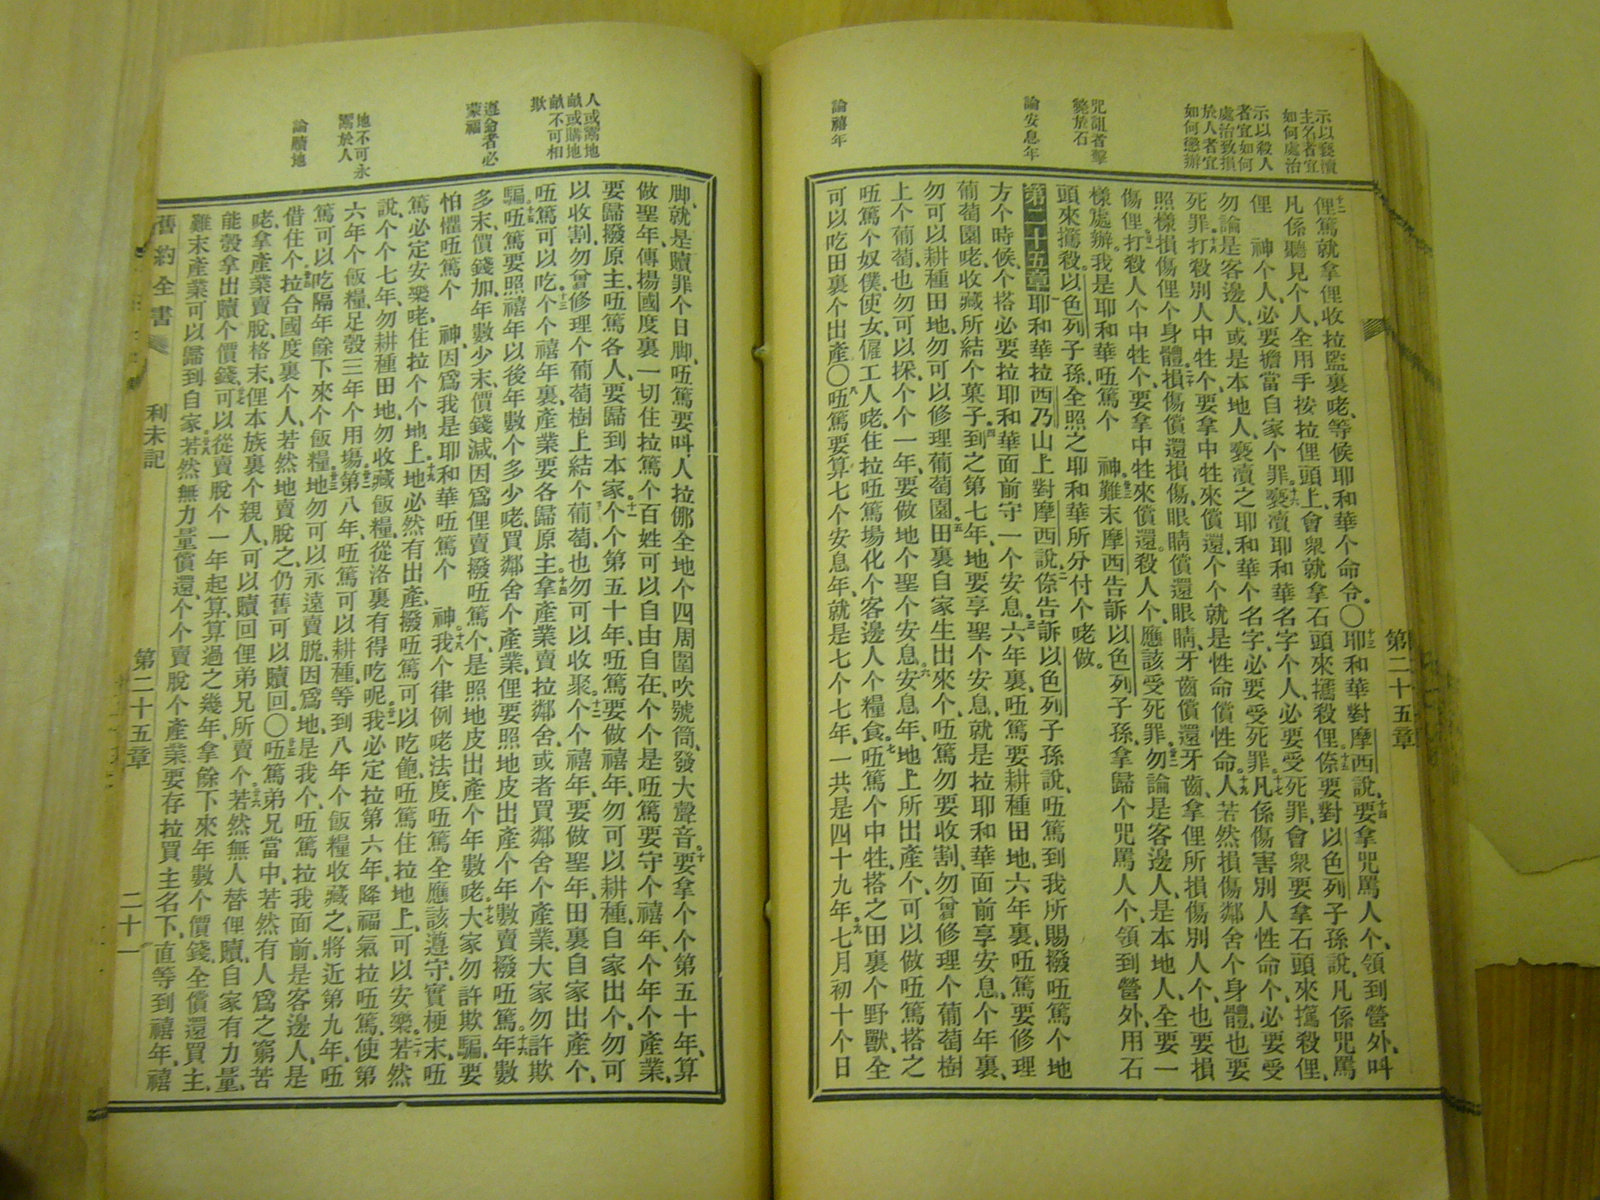 示以褻瀆
主名者宜
如何處治
示以殺人
者宜如何
處治致損
於人者宜
如何懲辦
咒詛者擊
斃於石
論安息年
論禧年
第二十五章
俚篤就拿俚收拉監裏咾、等候耶和華个命令。〇耶和華對摩西說、要拿咒罵人个、領到營外、叫
凡係聽見个人、全用手按拉俚頭上、會衆就拿石頭來擲殺俚。倷要對以色列子孫說、凡係咒罵
俚　神个人、必要擔當自家个罪。褻瀆耶和華名字个人、必要受死罪、會衆要拿石頭來擲殺俚、
勿論是客邊人、或是本地人、褻瀆之耶和華个名字、必要受死罪。凡係傷害別人性命个、必要受
死罪。打殺別人中牲个、要拿中牲來償還、个个就是性命償性命。人若然損傷鄰舍个身體、也要
照樣損傷俚个身體。損傷償還損傷、眼睛償還眼睛、牙齒償還牙齒、拿俚所損傷別人个、也要損
傷俚。打殺人个中牲个、要拿中牲來償還。殺人个、應該受死罪。勿論是客邊人、是本地人、全要一
樣處辦。我是耶和華唔篤个　神。難末摩西告訴以色列子孫、拿歸个咒罵人个、領到營外、用石
頭來擲殺。以色列子孫、全照之耶和華所分付个咾做。
第二十五章　耶和華拉西乃山上對摩西說、倷告訴以色列子孫說、唔篤到我所賜撥唔篤个地
方个時候、个搭必要拉耶和華面前守一个安息。六年裏、唔篤要耕種田地、六年裏、唔篤要修理
葡萄園咾收藏所結个菓子。到之第七年、地要享聖个安息、就是拉耶和華面前享安息、个年裏、
勿可以耕種田地、勿可以修理葡萄園。田裏自家生出來个、唔篤勿要收割、勿曾修理个葡萄樹
上个葡萄、也勿可以採、个个一年、要做地个聖个安息。安息年、地上所出產个、可以做唔篤搭之
唔篤个奴僕、使女、僱工人咾、住拉唔篤場化个客邊人个糧食。唔篤个中牲、搭之田裏个野獸、全
可以吃田裏个出產。〇唔篤要算七个安息年、就是七个七年、一共是四十九年。七月初十个日
人或鬻地
畝或購地
畝不可相
欺
遵命者必
蒙福
地不可永
鬻於人
論贖地
脚、就是贖罪个日脚、唔篤要叫人拉倻全地个四周圍吹號筒、發大聲音。要拿个个第五十年、算
做聖年、傳揚國度裏一切住拉篤个百姓可以自由自在、个个是唔篤要守个禧年、个年个產業、
要歸撥原主、唔篤各人、要歸到本家。个个第五十年、唔篤要做禧年、勿可以耕種自家出个、勿可
以收割、勿曾修理个葡萄樹上結个葡萄、也勿可以收聚。个个禧年、要做聖年、田裏自家出產个、
唔篤可以吃。个个禧年裏、產業要各歸原主。拿產業賣拉鄰舍、或者買鄰舍个產業、大家勿許欺
騙。唔篤要照禧年以後年數个多少咾、買鄰舍个產業、俚要照地皮出產个年數賣撥唔篤。年數
多末、價錢加、年數少末、價錢減、因爲俚賣撥唔篤个、是照地皮出產个年數咾。大家勿許欺騙、要
怕懼唔篤个　神、因爲我是耶和華唔篤个　神。我个律例咾法度、唔篤全應該遵守、實梗末、唔
篤必定安樂咾住拉个个地上。地必然有出產、撥唔篤可以吃飽、唔篤住拉地上、可以安樂。若然
說、个个七年、勿耕種田地、勿收藏飯糧、從洛裏有得吃呢。我必定拉第六年、降福氣拉唔篤、使第
六年个飯糧、足彀三年个用場。第八年、唔篤可以耕種、等到八年个飯糧收藏之、將近第九年、唔
篤可以吃隔年餘下來个飯糧。地勿可以永遠賣脫、因爲地是我个、唔篤拉我面前、是客邊人、是
借住个。拉合國度裏个人、若然地賣脫之、仍舊可以贖回。〇唔篤弟兄當中、若然有人爲之窮苦
咾、拿產業賣脫、格末、俚本族裏个親人、可以贖回俚弟兄所賣个。若然無人替俚贖、自家有力量、
能彀拿出贖个價錢、可以從賣脫个一年起算、算過之幾年、拿餘下來年數个價錢、全償還買主、
難末產業可以歸到自家。若然無力量償還、个个賣脫个產業、要存拉買主名下、直等到禧年、禧
舊約全書　利未記　第二十五章　二十一